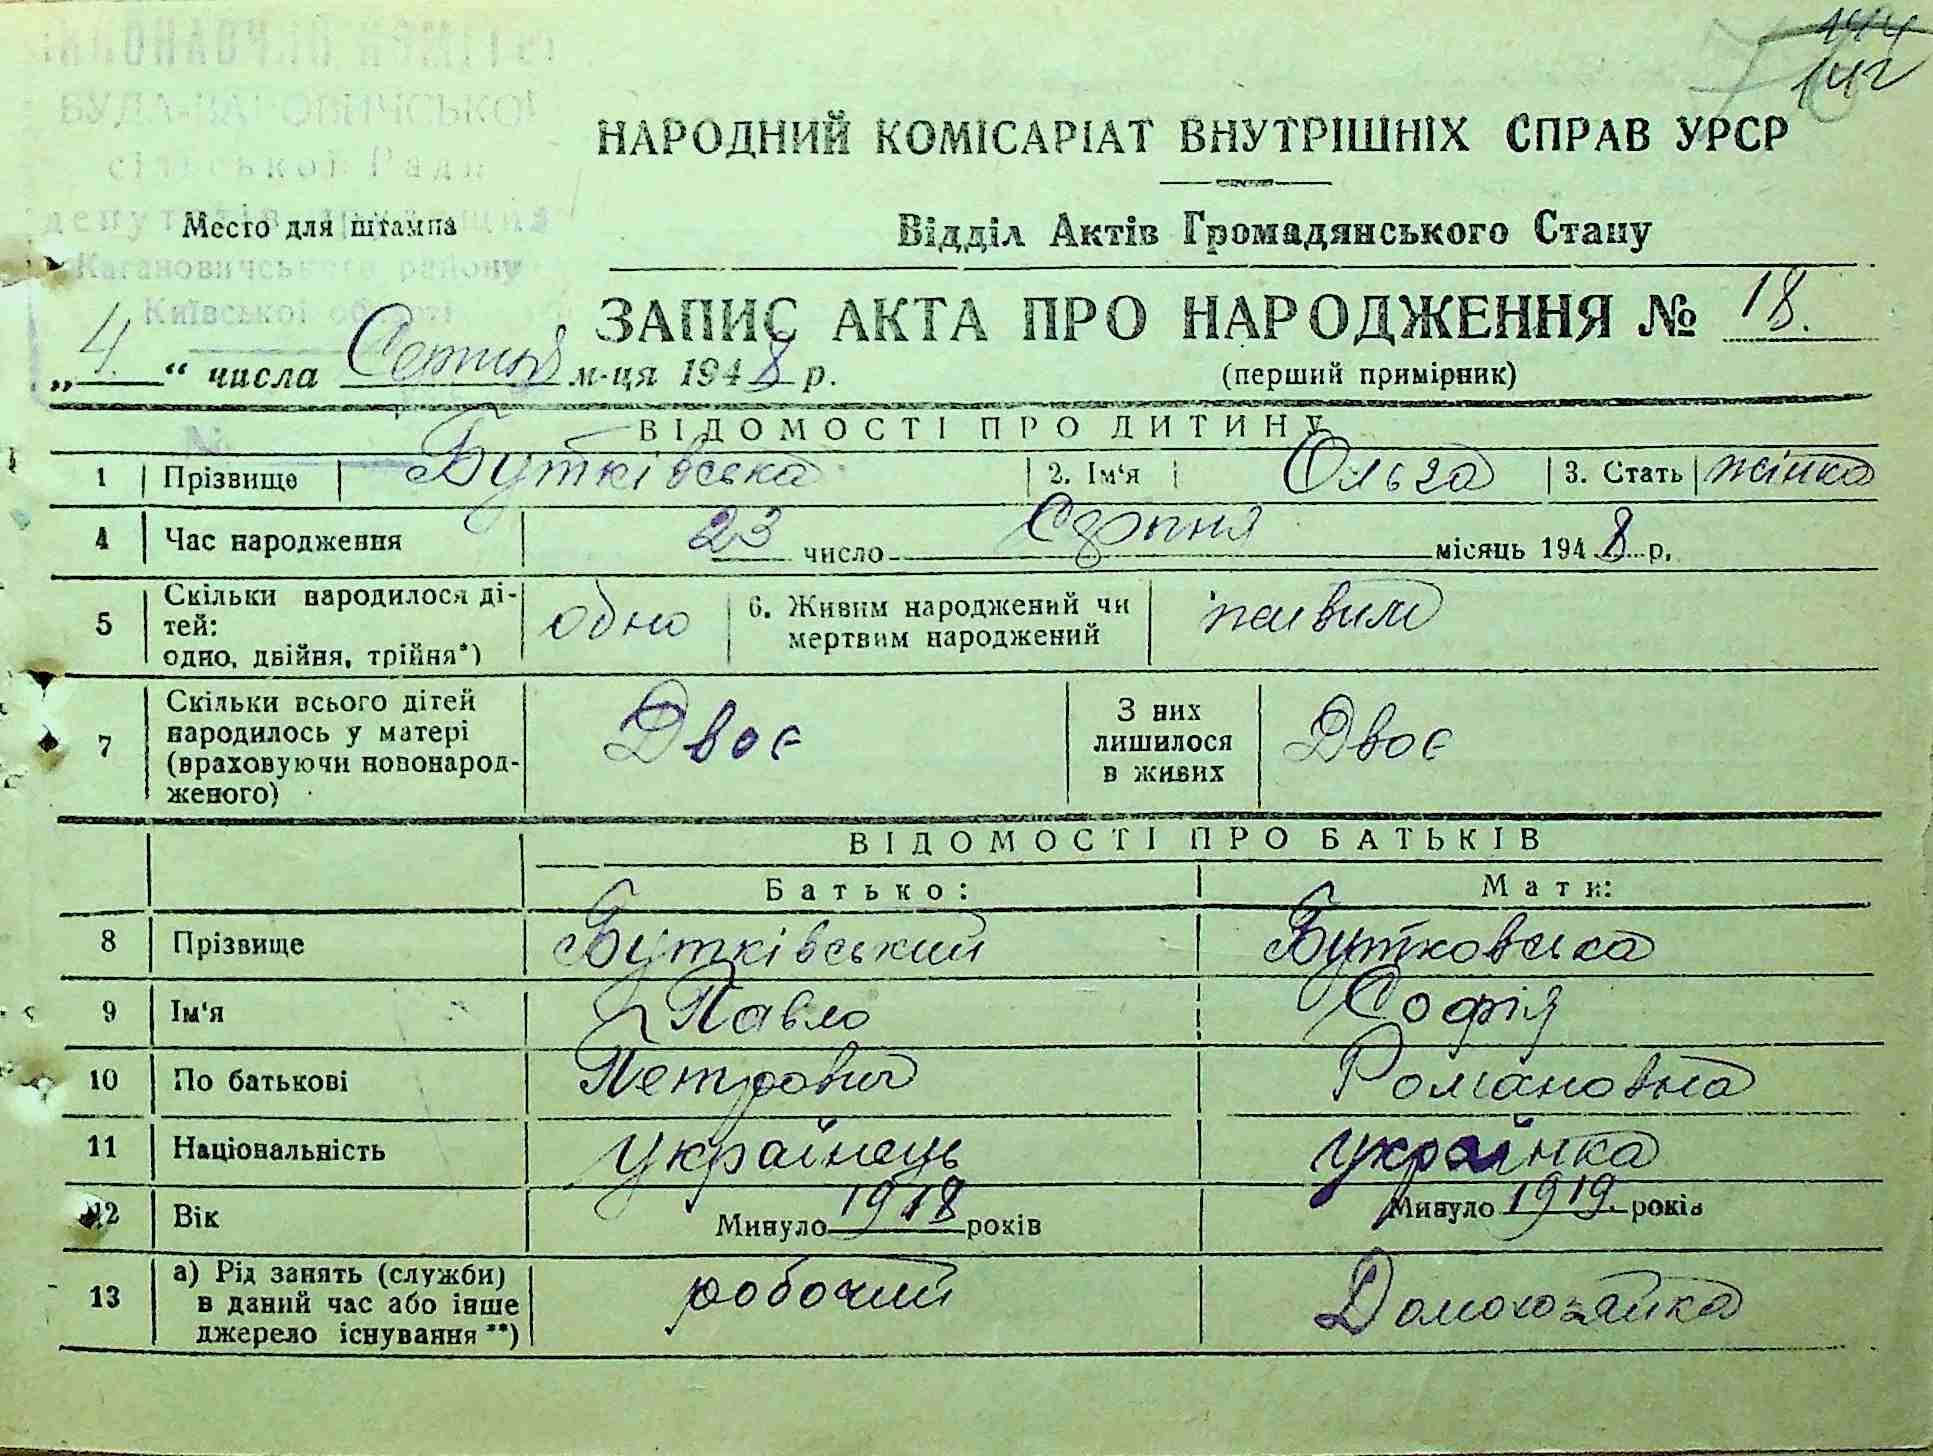 144
142
ВИКОНАВЧИЙ КОМІТЕТ
БУДА-ВАРОВИЧСЬКОЇ
сільської Ради
депутатів трудящих
Кагановичського району
Київської області
№
Место для штампа
НАРОДНИЙ КОМІСАРІАТ ВНУТРІШНІХ СПРАВ УРСР
Відділ Актів Громадянського Стану
ЗАПИС АКТА ПРО НАРОДЖЕННЯ № 18.
„4.“ числа Септня м-ця 1948 р.
(перший примірник)
ВІДОМОСТІ ПРО ДИТИНУ
1 Прізвище Бутківська 2. Ім'я Ольга 3. Стать жінка
4 Час народження 23 число Серпня місяць 1948 р.
5 Скільки народилося дітей: одно, двійня, трійня*) одно 6. Живим народжений чи мертвим народжений живим
7 Скільки всього дітей народилось у матері (враховуючи новонародженого) Двоє З них лишилося в живих Двоє
ВІДОМОСТІ ПРО БАТЬКІВ
Батько: Мати:
8 Прізвище Бутківський Бутковська
9 Ім'я Павло Софія
10 По батькові Петрович Романовна
11 Національність українець українка
12 Вік Минуло 1918 років Минуло 1919. років
13 а) Рід занять (служби) в даний час або інше джерело існування **) робочий Домохозяйка